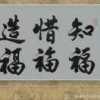 知惜造
福福福